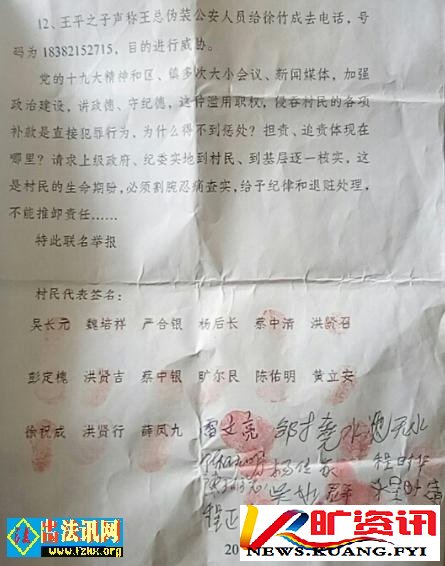 12、王平之子声称王总伪装公安人员给徐竹成去电话，号
码为 18382152715，目的进行威胁。
党的十九大精神和区、镇多次大小会议、新闻媒体，加强
政治建设，讲政德、守纪德，这种滥用职权，侵吞村民的各项
补款是直接犯罪行为，为什么得不到惩处？担责、追责体现在
哪里？请求上级政府、纪委实地到村民、到基层逐一核实，这
是村民的生命期盼，必须割腕忍痛查实，给予纪律和退赃处理，
不能推卸责任……
特此联名举报
村民代表签名：
吴长元 魏培祥 严合银 杨后长 蔡中清 洪贤召
彭定槐 洪贤吉 蔡中银 旷尔民 陈佑明 黄立安
徐祝成 洪贤行 薛凤九
程时华
20
法 出法讯网
www.fzhx.org
旷资讯
NEWS.KUANG.FYI